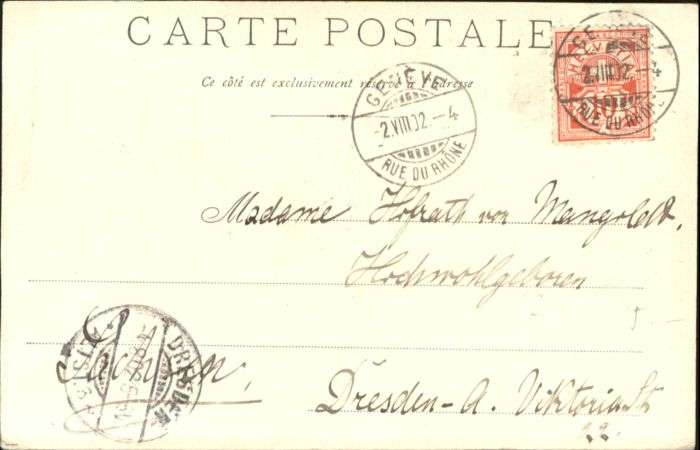 CARTE POSTALE
Ce côté est exclusivement réservé à l'adresse
GENÈVE
-2.VIII.02.-4
RUE DU RHÔNE
-2.VIII.02.-4
RUE DU RHÔNE
Madame Hofrath von Mangoldt,
Hochwohlgeboren
Sachsen,
DRESDEN
ALTST.
Dresden-A. Viktoriastr
22.